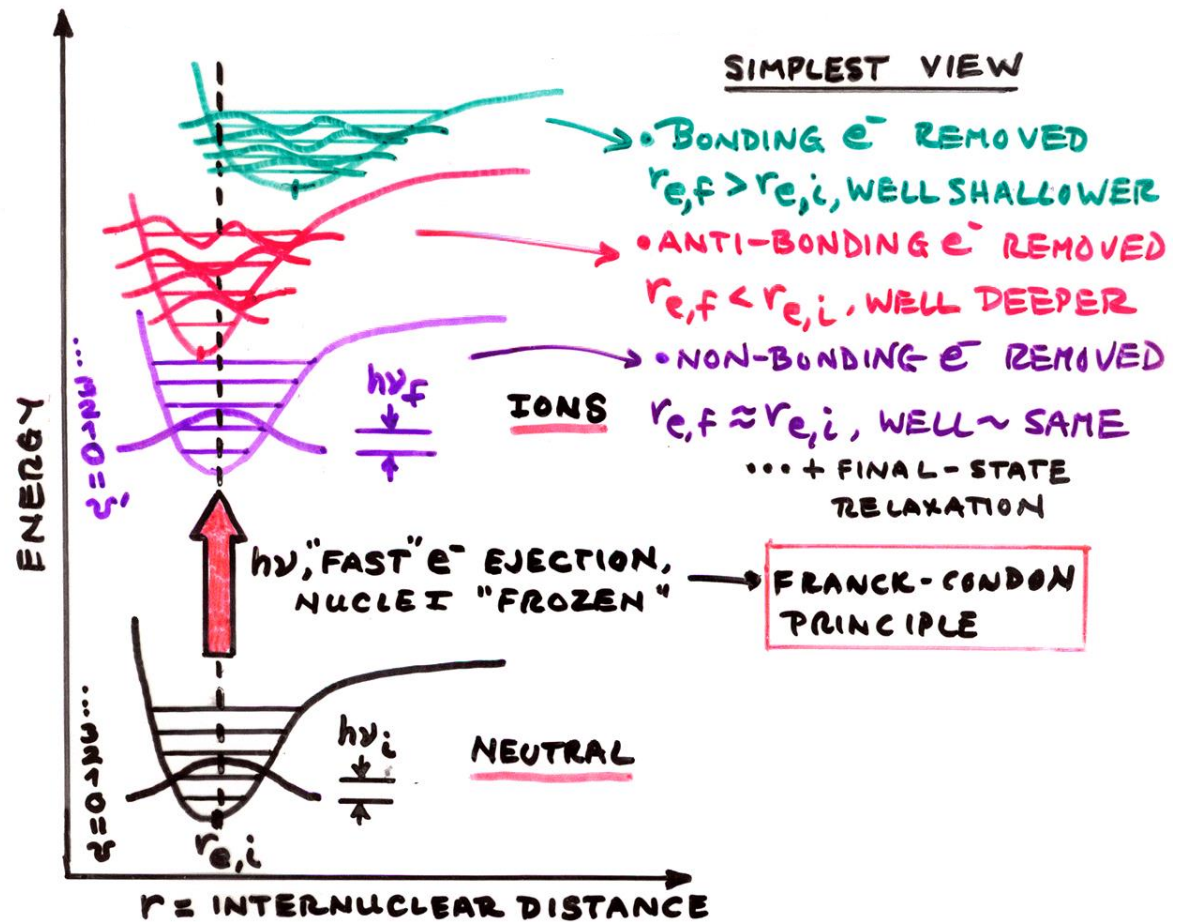 SIMPLEST VIEW
• BONDING e⁻ REMOVED
r_e,f > r_e,i, WELL SHALLOWER
• ANTI-BONDING e⁻ REMOVED
r_e,f < r_e,i, WELL DEEPER
• NON-BONDING e⁻ REMOVED
r_e,f ≈ r_e,i, WELL ~ SAME
... + FINAL-STATE
RELAXATION
IONS
hν_f
v' = 0 1 2 3 ...
ENERGY
hν, "FAST" e⁻ EJECTION,
NUCLEI "FROZEN"
FRANCK-CONDON
PRINCIPLE
hν_i
NEUTRAL
v = 0 1 2 3 ...
r_e,i
r = INTERNUCLEAR DISTANCE